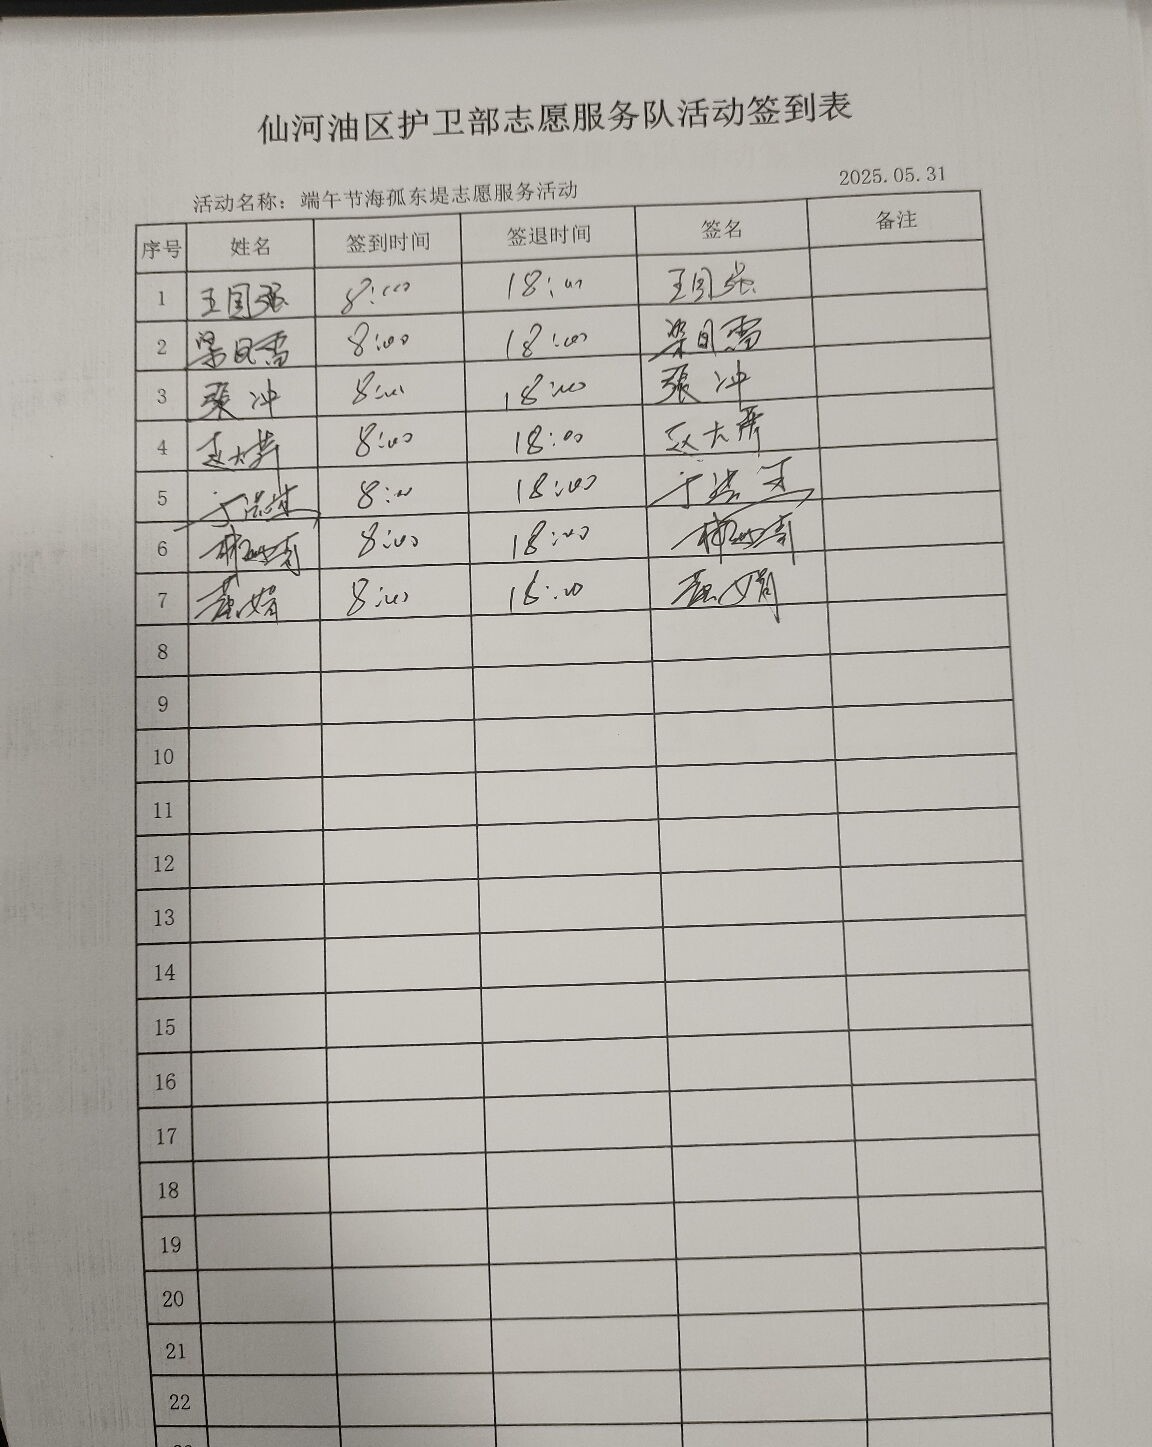 仙河油区护卫部志愿服务队活动签到表
活动名称：端午节海孤东堤志愿服务活动 2025.05.31
序号 姓名 签到时间 签退时间 签名 备注
1 王国强 8:00 18:00 王国强
2 梁 8:00 18:00 梁
3 張冲 8:00 18:00 張冲
4 赵大 8:00 18:00 赵大
5 于洪 8:00 18:00 于洪
6 8:00 18:00
7 娟 8:00 18:00 娟
8
9
10
11
12
13
14
15
16
17
18
19
20
21
22